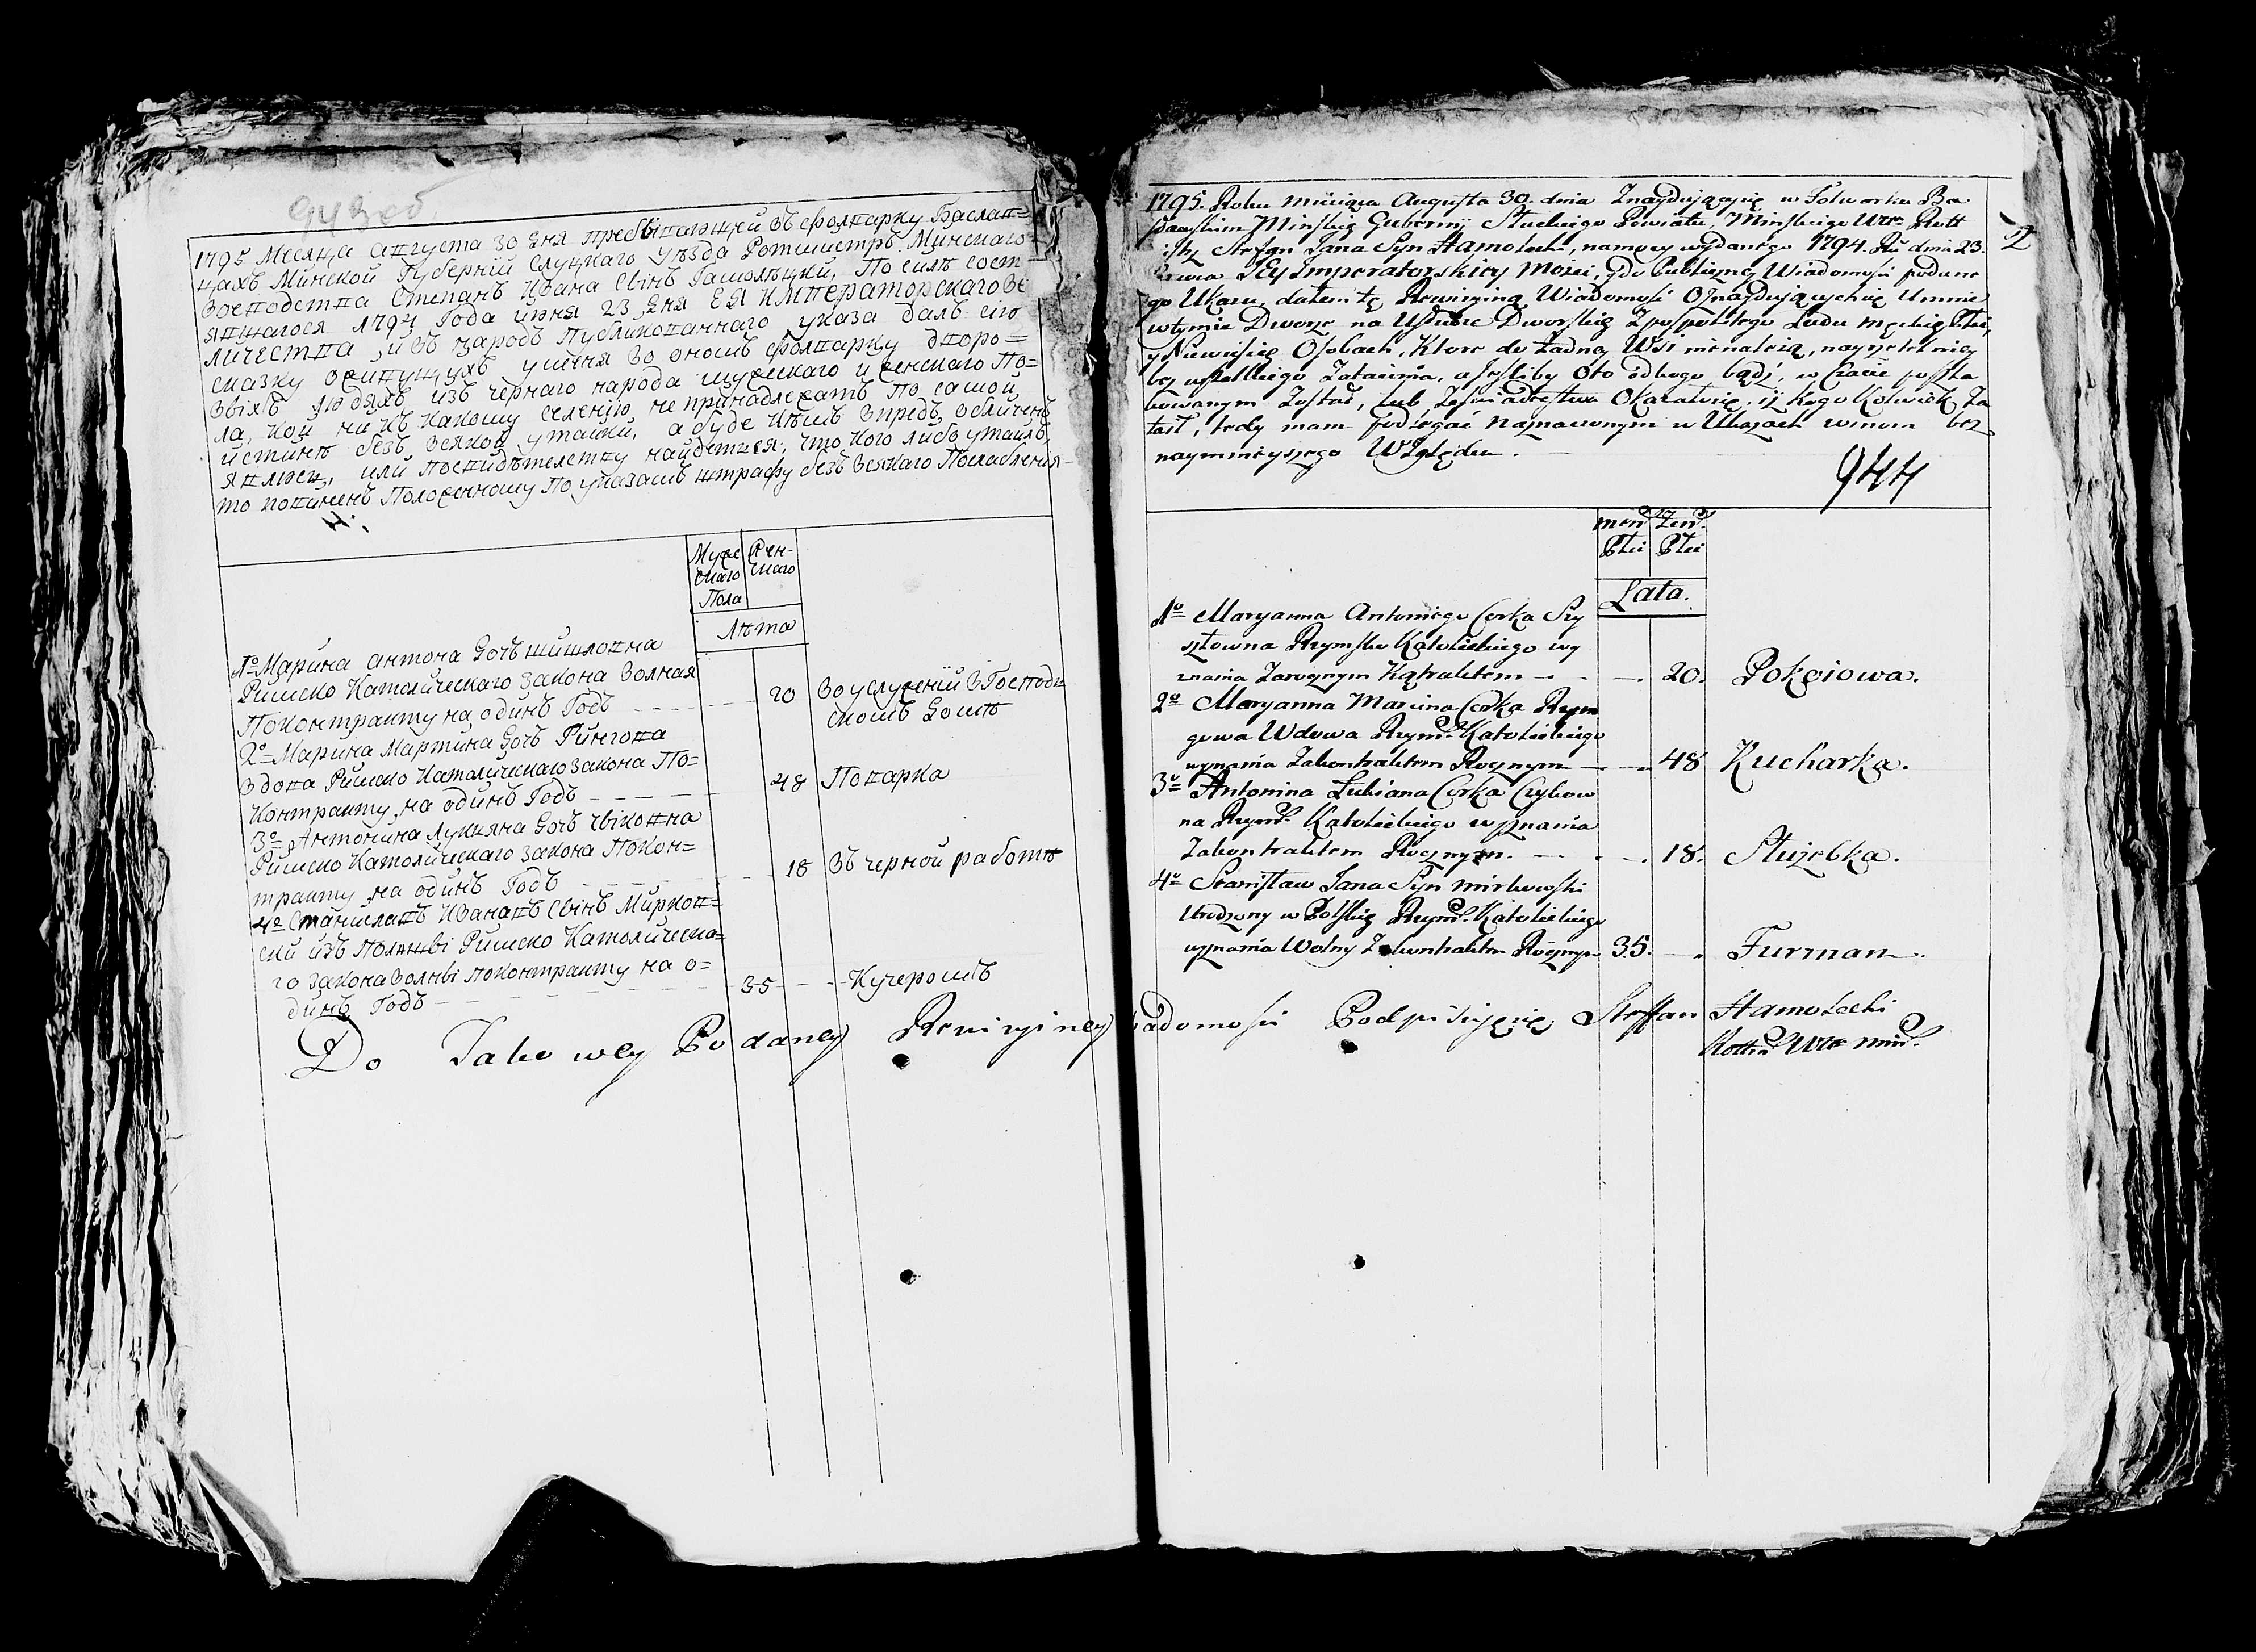 943 об
1795 Месяца августа 30 дня пребывающий въ фолварку Баслав=
цахъ Минской Губерніи Слуцкаго уѣзда Ротмистръ Минскаго
Воеводства Степанъ Ивана Сынъ Гамолѣцкий, По силѣ сост
явшагося 1794 Года июня 23 дня ЕЯ ИМПЕРАТОРСКАГО Ве
личества, и въ народъ Публикованнаго указа далъ сію
сказку о живущихъ у меня во ономъ фолварку дворо=
выхъ людяхъ изъ чернаго народа мужескаго и женскаго По=
ла, кои ни къ какому селенію не принадлежатъ по самой
истинѣ безъ всякой утайки, а буде кѣмъ впредь обличенъ
явлюсь, или по свидѣтелству найдется, что кого либо утаилъ,
то повиненъ Положенному По указамъ штрафу безъ всякаго Послабления
Муже Жен-
скаго скаго
Пола
Лѣта
1º Марина антона дочь шишловна
Римско Католическаго закона Волная
По контракту на одинъ Годъ — — — 20 Во услуженіи в Господ
скомъ домѣ
2º Марина Мартина дочь Рингова
вдова Римско Католическаго закона По=
контракту на одинъ Годъ — — — 48 Поварка
3º Антонина Лукьяна дочь чыковна
Римско Католическаго закона По кон=
тракту на одинъ Годъ — — — 18 Въ черной работѣ
4º Станиславъ Ивановъ Сынъ Мирков=
ский изъ Полшы Римско Католическа=
го закона Волны по контракту на о=
динъ Годъ — — — 35 — — Кучеромъ
2
1795. Roku Miesiąca Augusta 30. dnia Znayduiącysię w Folwarku Ba
sławskim Minskiey Gubernij Słuckiego Powiatu, Minskiego Wdz. Rott
Stefan Jana Syn Hamolecki, na mocy wydanego 1794. Ru dnia 23.
JEy Imperatorskiey Mosci, y do Publiczney Wiadomosci podane
go Ukazu, dałem tę Rewizyiną Wiadomosc o znayduiącychsię u mnie
w tymże Dworze na Usłudze Dworskiey z pospolitego Ludu męskiey Płci,
y Niewiesciey Osobach, Ktore do żadney Wsi nienależą, nayrzetelniey
bez wszelkiego Zataienia, a jesliby oto od kogo bądź, w Czasie poszla
kowanym Został, lub Zeswiadectwa Okazałosię, iż kogo Kolwiek Za
taił, tedy mam podlegać Naznaczonym w Ukazach winom bez
naymnieyszego Względu.
944
męs. Żeń.
Płci Płci
Lata.
1º Maryanna Antoniego Corka Szy
szłowna Rzymsko Katolickiego wy
znania Zarocznym Kątraktem — — 20. Pokoiowa.
2º Maryanna Marcina Corka Ryn
gowa Wdowa Rzyms. Katolickiego
wyznania Zakontraktem Rocznym — — 48 Kucharka.
3º Antonina Łukiana Corka Czykow
na Rzyms. Katolickiego wyznania
Zakontraktem Rocznym. — — 18. Służebka.
4º Stanisław Jana Syn Mirkowski
Urodzony w Polskiey Rzyms. Katolickiego
wyznania Wolny Zakontraktem Rocznym 35. — Furman.
Do Takowey Podaney Rewizyiney adomosci Podpisuięsię Steffan Hamolecki
Rottm Wdz Min.